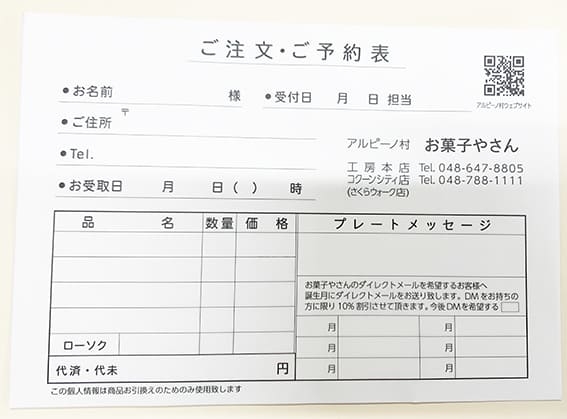 ご注文・ご予約表
アルピーノ村ウェブサイト
●お名前 様 ●受付日 月 日 担当
●ご住所 〒
●Tel.
●お受取日 月 日( ) 時
アルピーノ村 お菓子やさん
工房本店 TeL 048-647-8805
コクーンシティ店 TeL 048-788-1111
(さくらウォーク店)
品 名 数量 価 格
ローソク
代済・代未 円
プレートメッセージ
お菓子やさんのダイレクトメールを希望するお客様へ
誕生月にダイレクトメールをお送り致します。DMをお持ちの
方に限り10%割引させて頂きます。今後DMを希望する
月 月
月 月
月 月
この個人情報は商品お引換えのためのみ使用致します